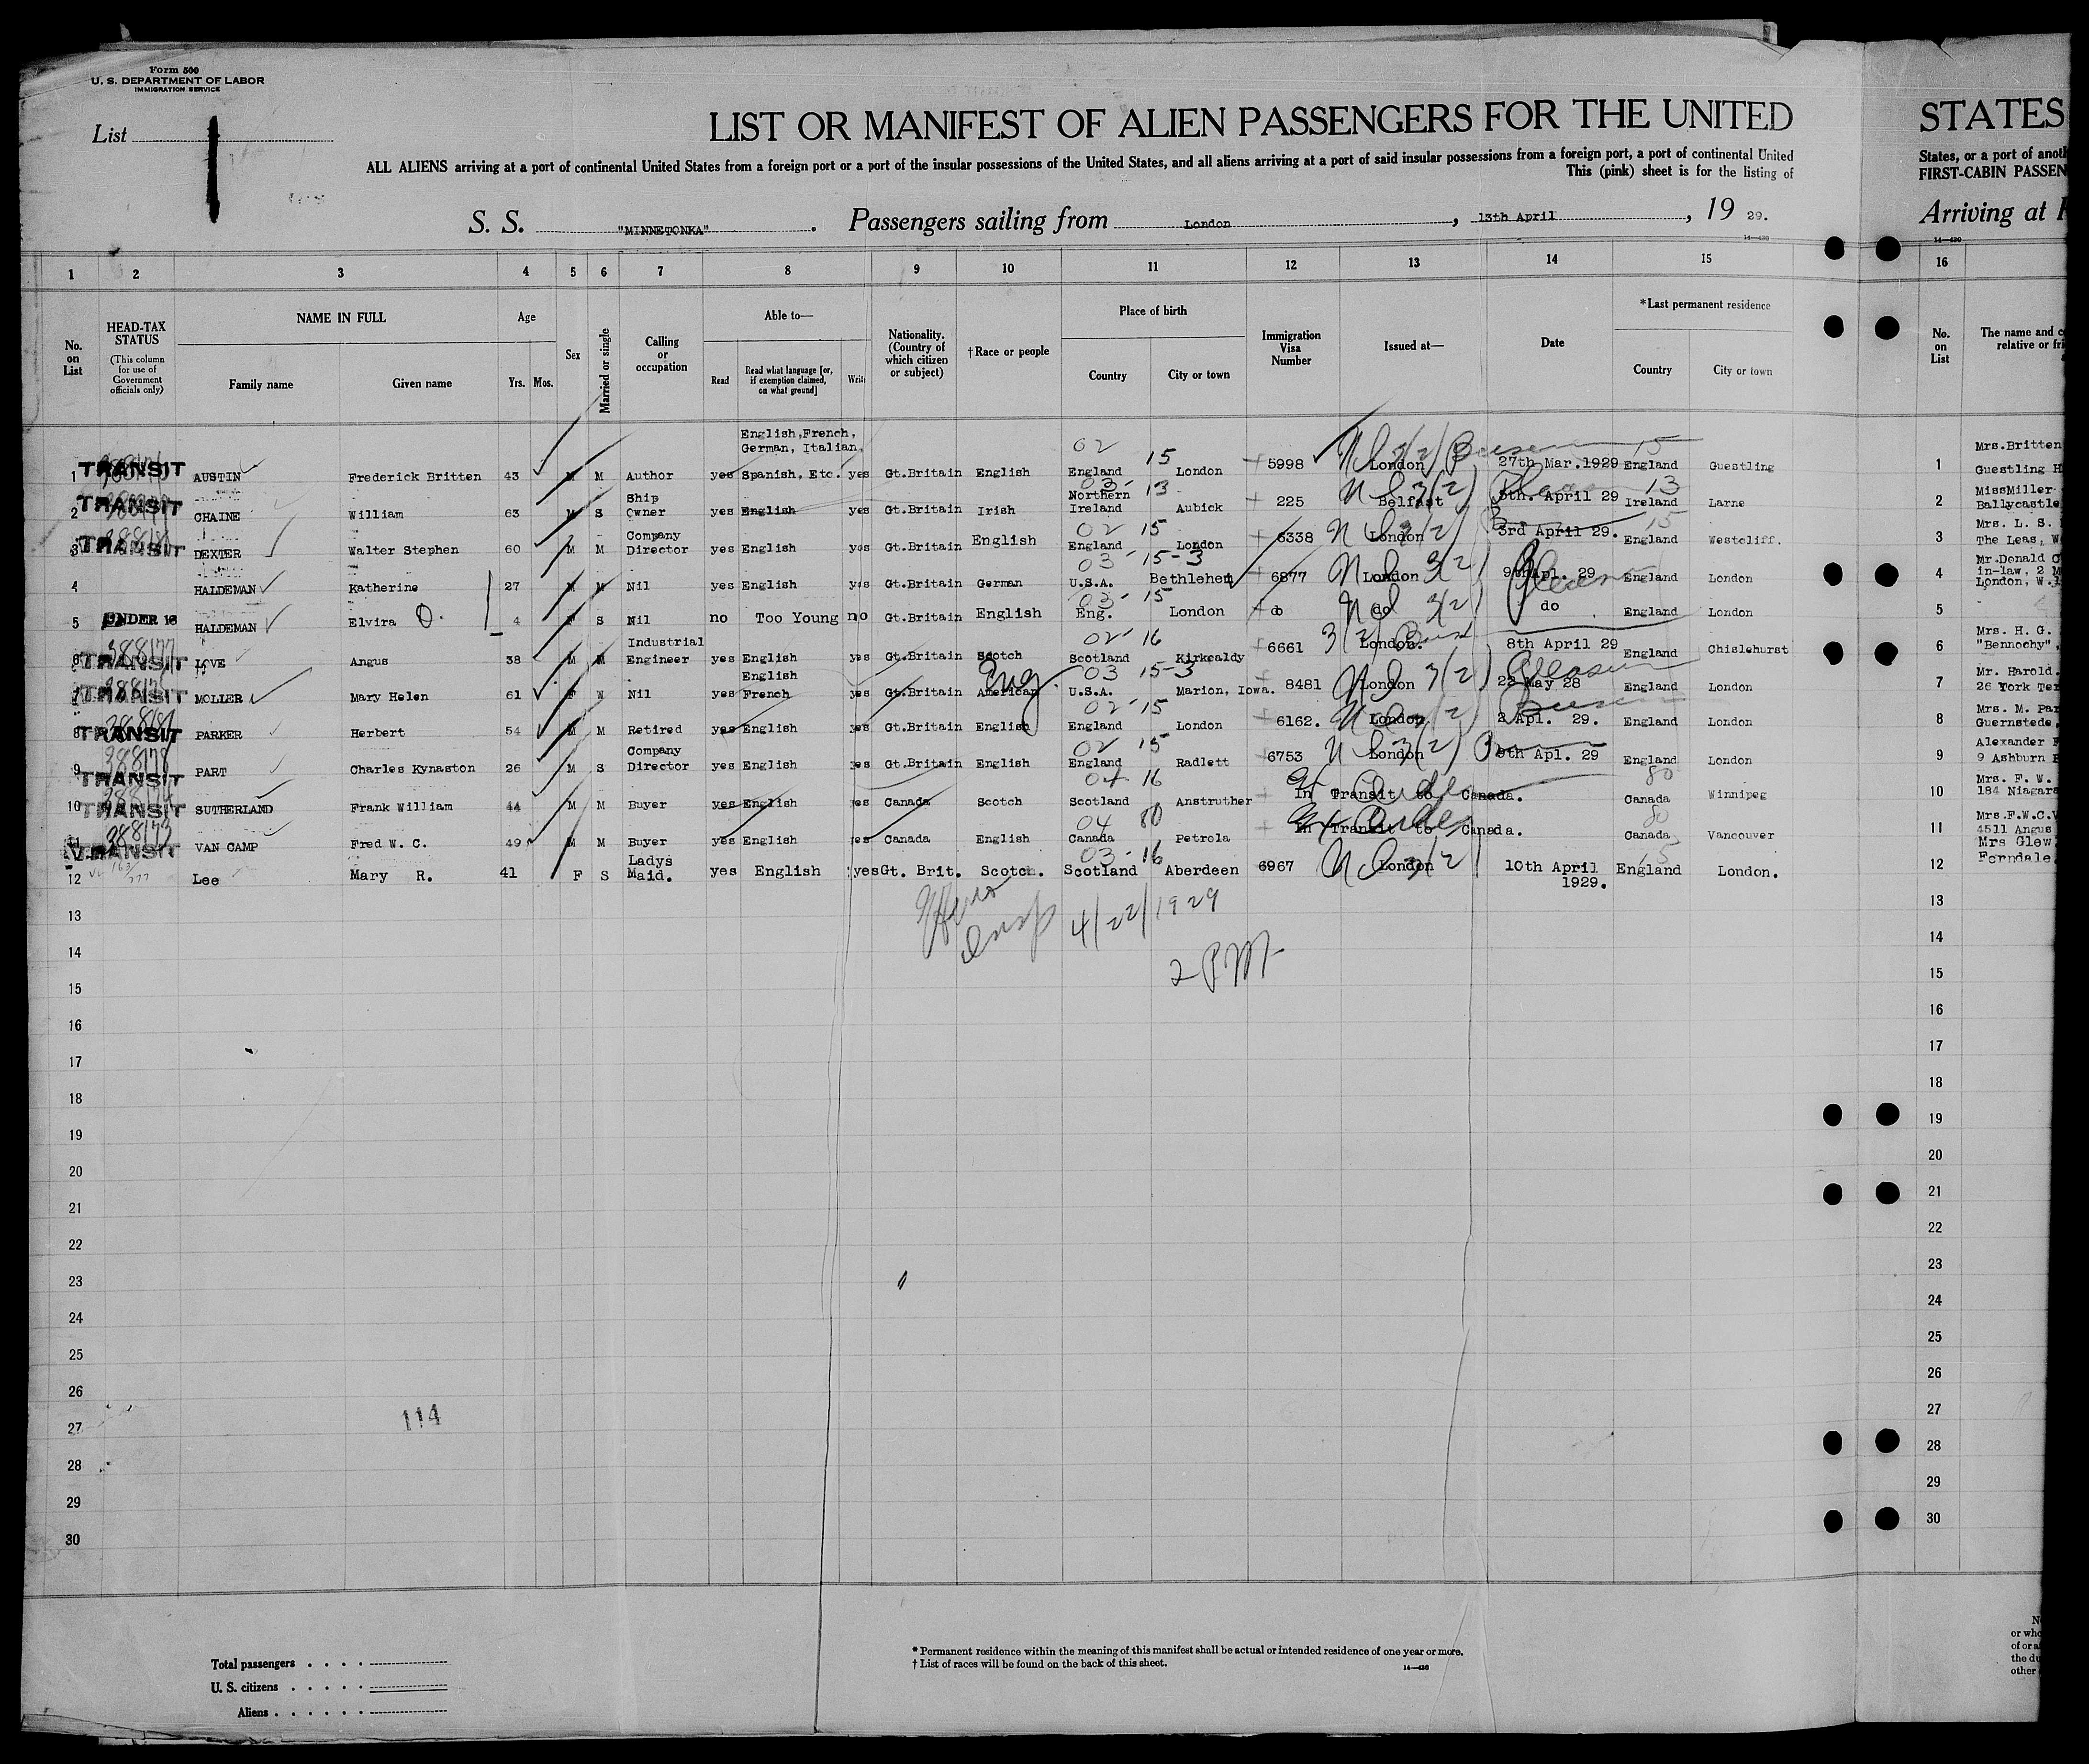 Form 500
U. S. DEPARTMENT OF LABOR
IMMIGRATION SERVICE
List 1
LIST OR MANIFEST OF ALIEN PASSENGERS FOR THE UNITED
STATES
ALL ALIENS arriving at a port of continental United States from a foreign port or a port of the insular possessions of the United States, and all aliens arriving at a port of said insular possessions from a foreign port, a port of continental United
States, or a port of anoth
This (pink) sheet is for the listing of
FIRST-CABIN PASSEN
S. S. "MINNETONKA". Passengers sailing from London, 13th April, 19 29.
Arriving at
14—430
14—430
1 2 3 4 5 6 7 8 9 10 11 12 13 14 15 16
No. on List
HEAD-TAX STATUS
(This column for use of Government officials only)
NAME IN FULL
Family name Given name
Age
Yrs. Mos.
Sex
Married or single
Calling or occupation
Able to—
Read
Read what language [or, if exemption claimed, on what ground]
Write
Nationality. (Country of which citizen or subject)
†Race or people
Place of birth
Country City or town
Immigration Visa Number
Issued at—
Date
*Last permanent residence
Country City or town
No. on List
The name and c
relative or fri
English, French,
German, Italian,
02 15 15
1 TRANSIT AUSTIN Frederick Britten 43 M M Author yes Spanish, Etc. yes Gt.Britain English England London 5998 London 27th Mar.1929 England Guestling 1 Mrs.Britten Guestling H
03- 13 13
2 TRANSIT CHAINE William 63 M S Ship Owner yes English yes Gt.Britain Irish Northern Ireland Aubick 225 Belfast 5th. April 29 Ireland Larne 2 MissMiller Ballycastle
02 15 15
3 TRANSIT DEXTER Walter Stephen 60 M M Company Director yes English yes Gt.Britain English England London 6338 London 3rd April 29. England Westcliff. 3 Mrs. L. S. The Leas, W
03 15-3
4 HALDEMAN Katherine 27 M Nil yes English yes Gt.Britain German U.S.A. Bethlehem 6877 London 9th Apl. 29 England London 4 Mr.Donald in-law, 2 M London, W.
03- 15
5 UNDER 16 HALDEMAN Elvira D. 4 F S Nil no Too Young no Gt.Britain English Eng. London do do do England London 5
02- 16
6 388177 TRANSIT LOVE Angus 38 M M Industrial Engineer yes English yes Gt.Britain Scotch Scotland Kirkcaldy 6661 London. 8th April 29 England Chislehurst 6 Mrs. H. G. "Bennochy",
03 15-3
7 TRANSIT MOLLER Mary Helen 61 F W Nil yes English French yes Gt.Britain American Eng. U.S.A. Marion, Iowa. 8481 London 23 May 28 England London 7 Mr. Harold. 26 York Ter
02-15
8 TRANSIT PARKER Herbert 54 M M Retired yes English yes Gt.Britain English England London 6162. London 2 Apl. 29. England London 8 Mrs. M. Par Guernstede,
02 15
9 388178 TRANSIT PART Charles Kynaston 26 M S Company Director yes English yes Gt.Britain English England Radlett 6753 London 9th Apl. 29 England London 9 Alexander 9 Ashburn
04 16 80
10 TRANSIT SUTHERLAND Frank William 44 M M Buyer yes English yes Canada Scotch Scotland Anstruther In Transit to Canada. Canada Winnipeg 10 Mrs. F. W. 184 Niagara
04 80 80
11 388173 TRANSIT VAN CAMP Fred W. C. 49 M M Buyer yes English yes Canada English Canada Petrola In Transit to Canada. Canada Vancouver 11 Mrs.F.W.C.V 4511 Angus
03-16 15
12 Lee Mary R. 41 F S Ladys Maid. yes English yes Gt. Brit. Scotch. Scotland Aberdeen 6967 London 10th April 1929. England London. 12 Mrs Glew Ferndale
13 13
4/22/1929
14 14
2 PM
15 15
16 16
17 17
18 18
19 19
20 20
21 21
22 22
23 23
24 24
25 25
26 26
114
27 27
28 28
29 29
30 30
Total passengers
U. S. citizens
Aliens
* Permanent residence within the meaning of this manifest shall be actual or intended residence of one year or more.
† List of races will be found on the back of this sheet.
14—430
or who
of or a
the du
other